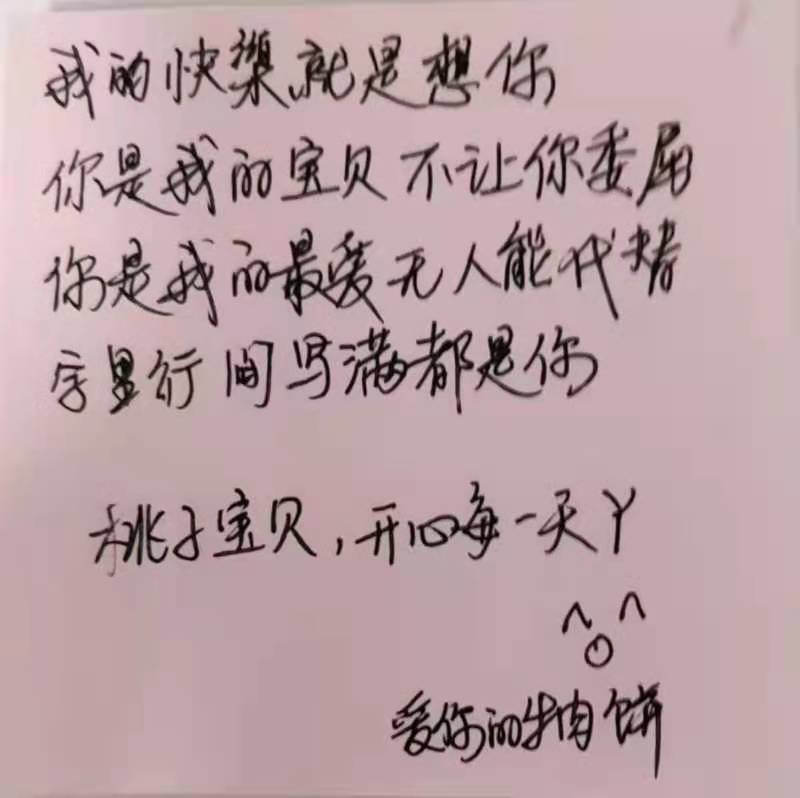 我的快樂就是想你
你是我的宝贝 不让你委屈
你是我的最爱 无人能代替
字里行间写满都是你
桃子宝贝，开心每一天丫
^o^
爱你的牛肉饼